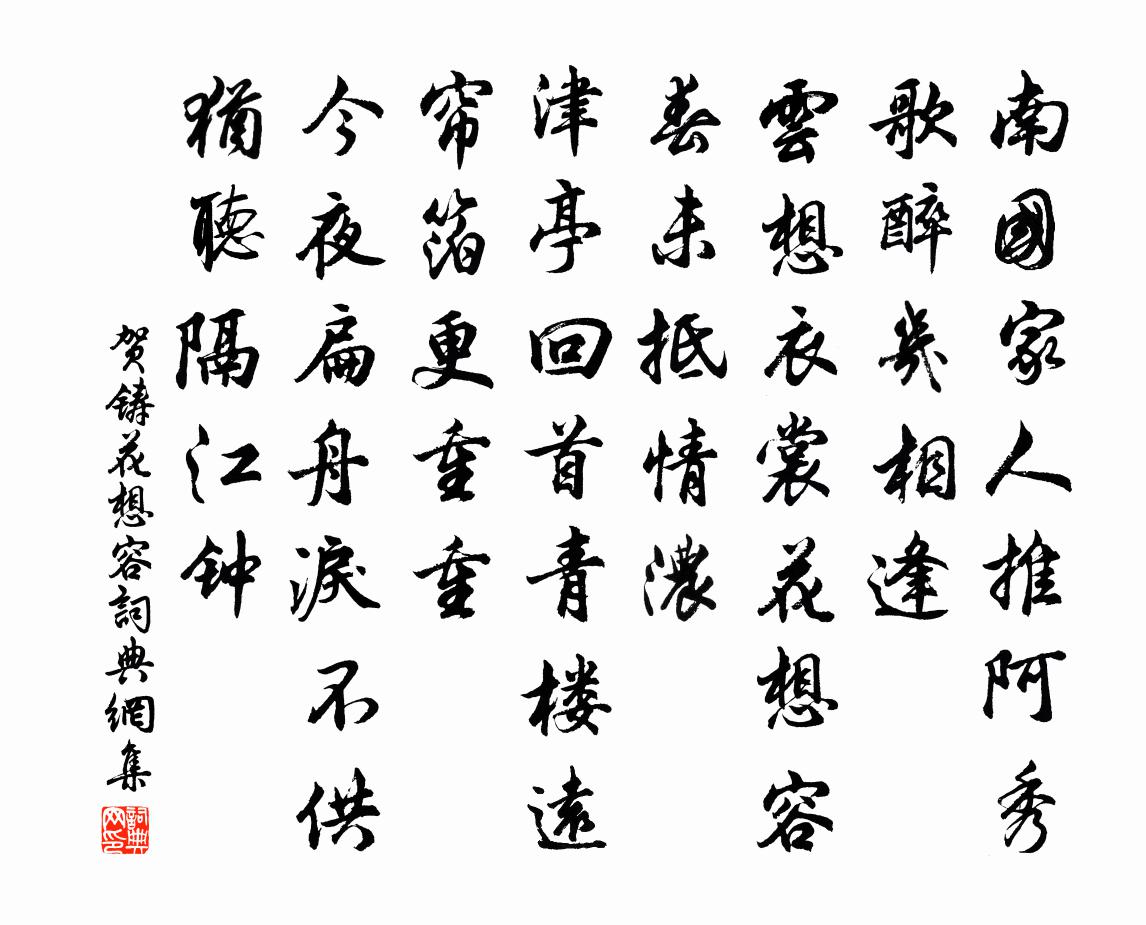 南國家人推阿秀
歌醉幾相逢
雲想衣裳花想容
春未抵情濃
津亭回首青楼遠
帘箔更重重
今夜扁舟淚不供
猶聽隔江钟
贺鑄花想容詞典網集
詞典
网印